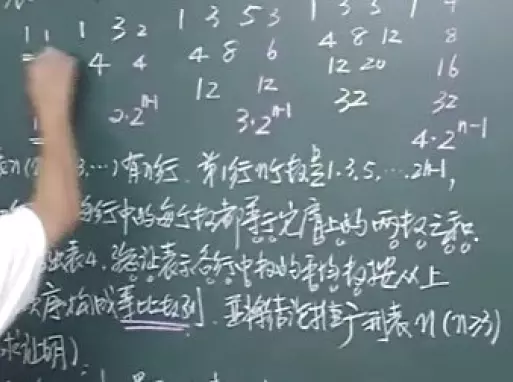 1 1 1 3 2 1 3 5 3 1 3 5 1 4
4 4 4 8 6 4 8 12 8
12 12 12 20 16
32 32
2·2ⁿ⁻¹ 3·2ⁿ⁻¹
4·2ⁿ⁻¹
3,…)有n行.第1行n个数是1.3.5,…2n-1,
行中的每个数都等于它肩上的两数之和.
出表4.验证表示各行中数的平均数按从上
顺序构成等比数列.并将结论推广到表n(n≥3)
求证明).